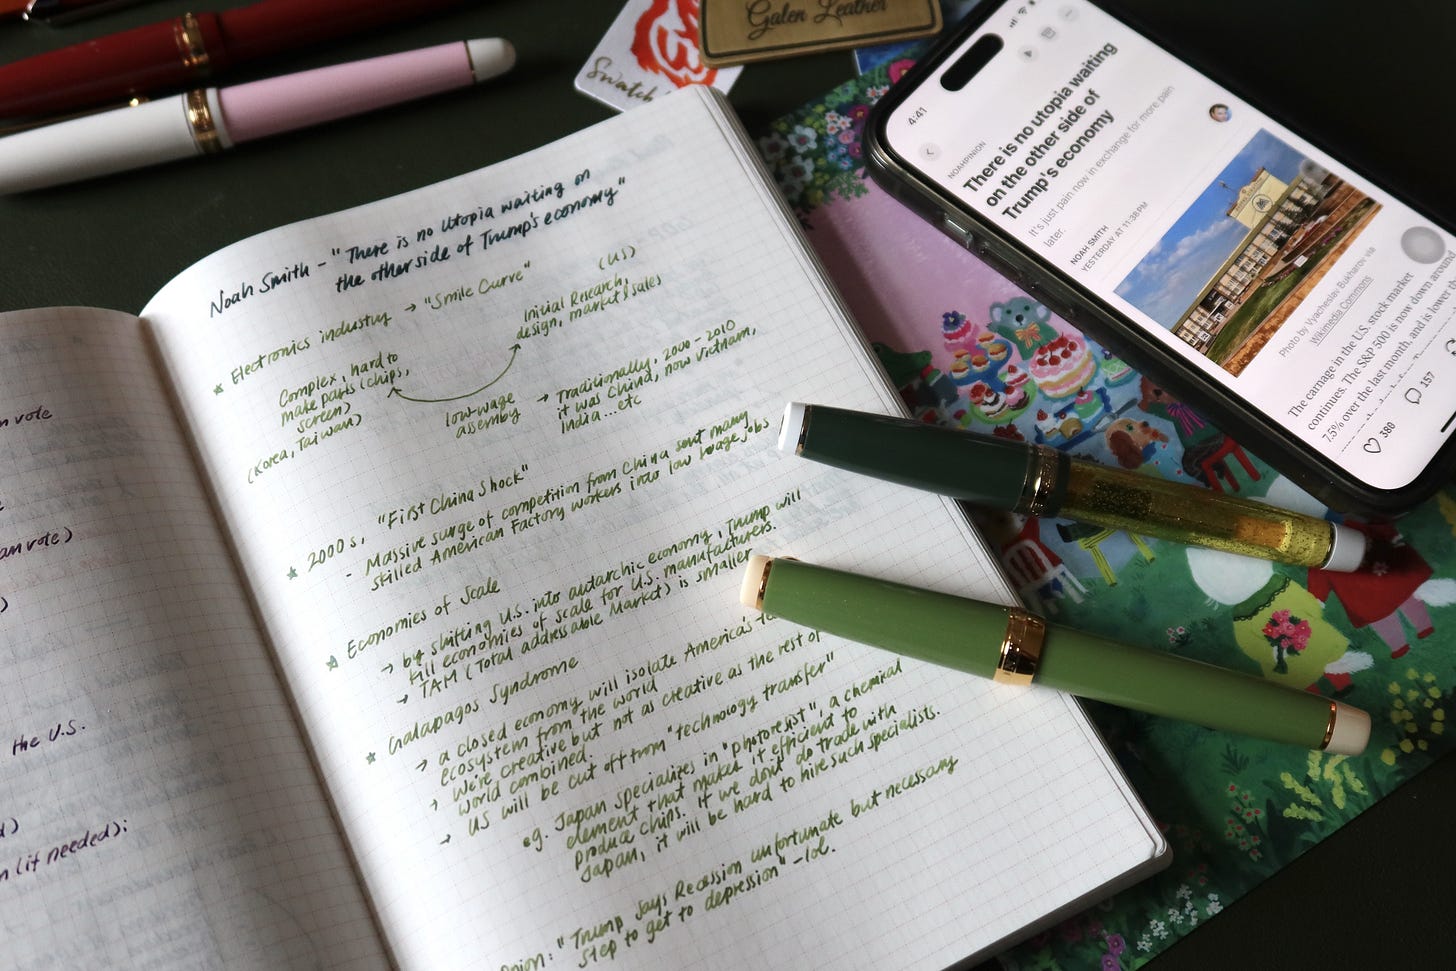 an vote
an vote)
the U.S.
n (if needed):
Noah Smith - "There is no utopia waiting on
the other side of Trump's economy"
Electronics industry → "Smile Curve"
(US)
Initial Research,
design, market/sales
Complex, hard to
make parts (chips,
screen)
(Korea, Taiwan)
low-wage
assembly
→ Traditionally, 2000-2010
it was China, now Vietnam,
India...etc
2000s, "First China Shock"
- Massive surge of competition from China sent many
skilled American Factory workers into low wage jobs
Economies of Scale
→ by shifting U.S. into autarchic economy, Trump will
kill economies of scale for U.S. manufacturers.
→ TAM (Total addressable Market) is smaller
Galapagos Syndrome
→ a closed economy will isolate America's
ecosystem from the world
→ we're creative but not as creative as the rest of
world combined.
→ US will be cut off from "technology transfer"
eg. Japan specializes in "photoresist", a chemical
element that makes it efficient to
produce chips. If we don't do trade with
Japan, it will be hard to hire such specialists.
"Trump says Recession unfortunate but necessary
step to get to depression" -lol.
Swatch
Galen Leather
4:41
NOAHPINION
There is no utopia waiting
on the other side of
Trump's economy
It's just pain now in exchange for more pain
later.
NOAH SMITH
YESTERDAY AT 11:38 PM
Photo by Vyacheslav Bukharov via
Wikimedia Commons
The carnage in the U.S. stock market
continues. The S&P 500 is now down around
7.5% over the last month, and is lower
380
157